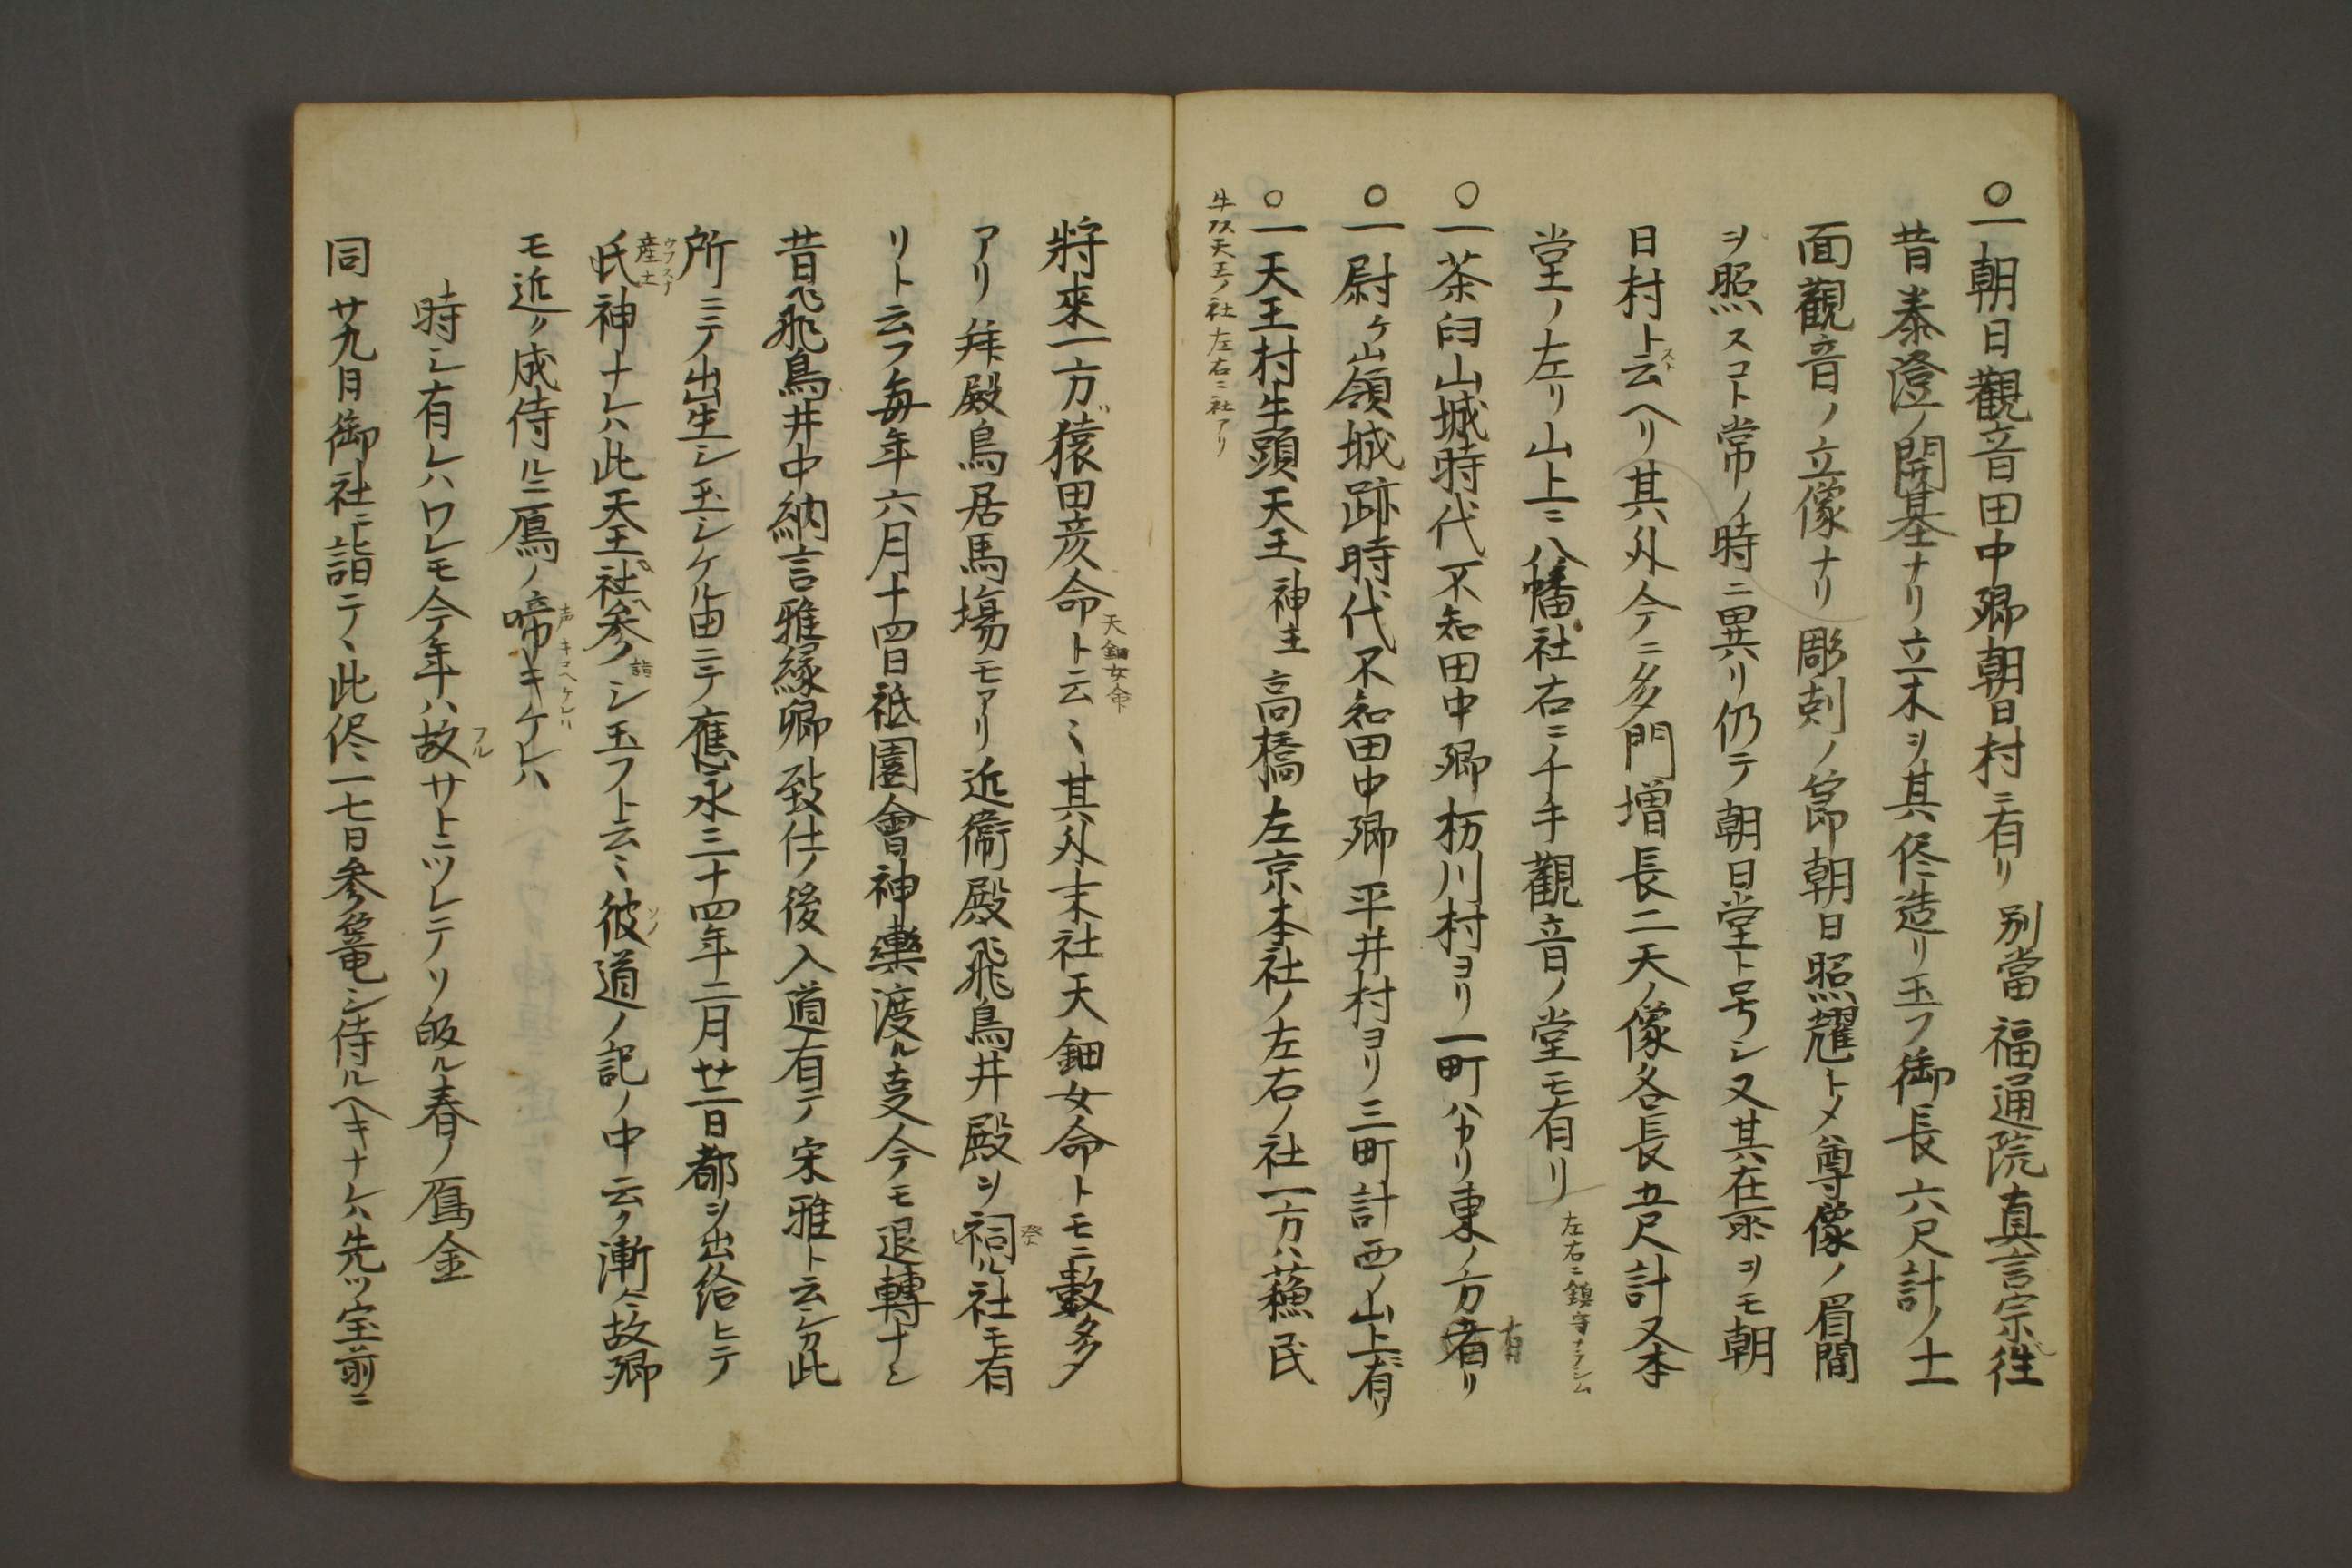 ○一朝日觀音田中郷朝日村ニ有リ別當福通院真言宗往
昔泰澄ノ開基ナリ立木ヲ其侭造リ玉フ御長六尺計ノ十一
面觀音ノ立像ナリ彫刻ノ節朝日照耀トメハ尊像ノ眉間
ヲ照スコト常ノ時ニ異リ仍テ朝日堂ト号シ又其在所ヲモ朝
日村ト云ヘリ其外今ニ多門増長二天ノ像各長五尺計又本
堂ノ左リ山上ニ八幡社右ニ千手觀音ノ堂モ有リ
左右ニ鎮守
○一茶臼山城時代不知田中郷杤川村ヨリ一町ハカリ東ノ方有リ
有
○一尉ケ嶺城跡時代不知田中郷平井村ヨリ三町計西ノ山上有リ
○一天王村牛頭天王神主高橋左京本社ノ左右ノ社一方ハ蘓民
牛頭天王ノ社左右ニ社アリ
將來一方猿田彦命ト云ミ其外末社天鈿女命トモニ數多
天鈿女命
アリ拜殿鳥居馬塲モアリ近衞殿飛鳥井殿ヲ祠ル社モ有
リト云フ毎年六月十四日祇園會神樂渡ル支今ニモ退轉ナシ
昔飛鳥井中納言雅緣卿致仕ノ後入道有テ宋雅ト云シカ此
所ニテノ出生シ玉シケル由ニテ應永三十四年二月廿二日都ヲ出給ヒテ
氏神ナレハ此天王社ヘ参シ玉フト云ミ彼道ノ記ノ中云ク漸ク故郷
産土
詣
ソノ
モ近ク成侍ルニ鴈ノ啼キケレハ
声キコヘケレハ
時シ有レハワレモ今年ハ故サトニツレテソ皈ル春ノ鴈金
フル
同廿九日御社ニ詣テヽ此侭一七日参篭シ侍ルヘキナレハ先ツ宝前ニ